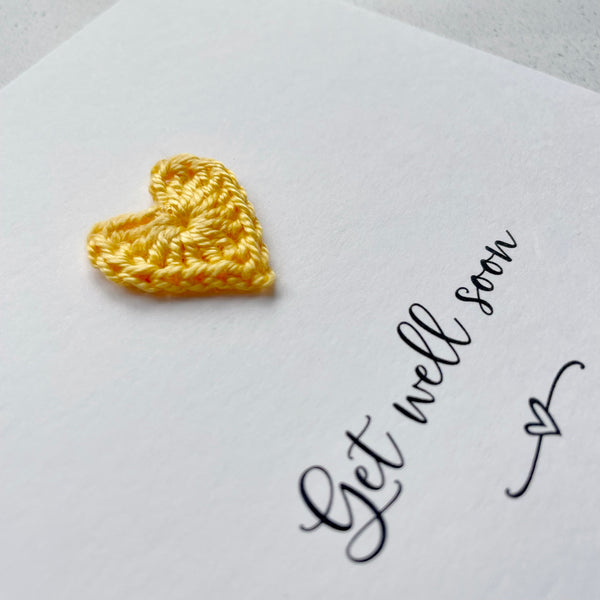 Get well soon